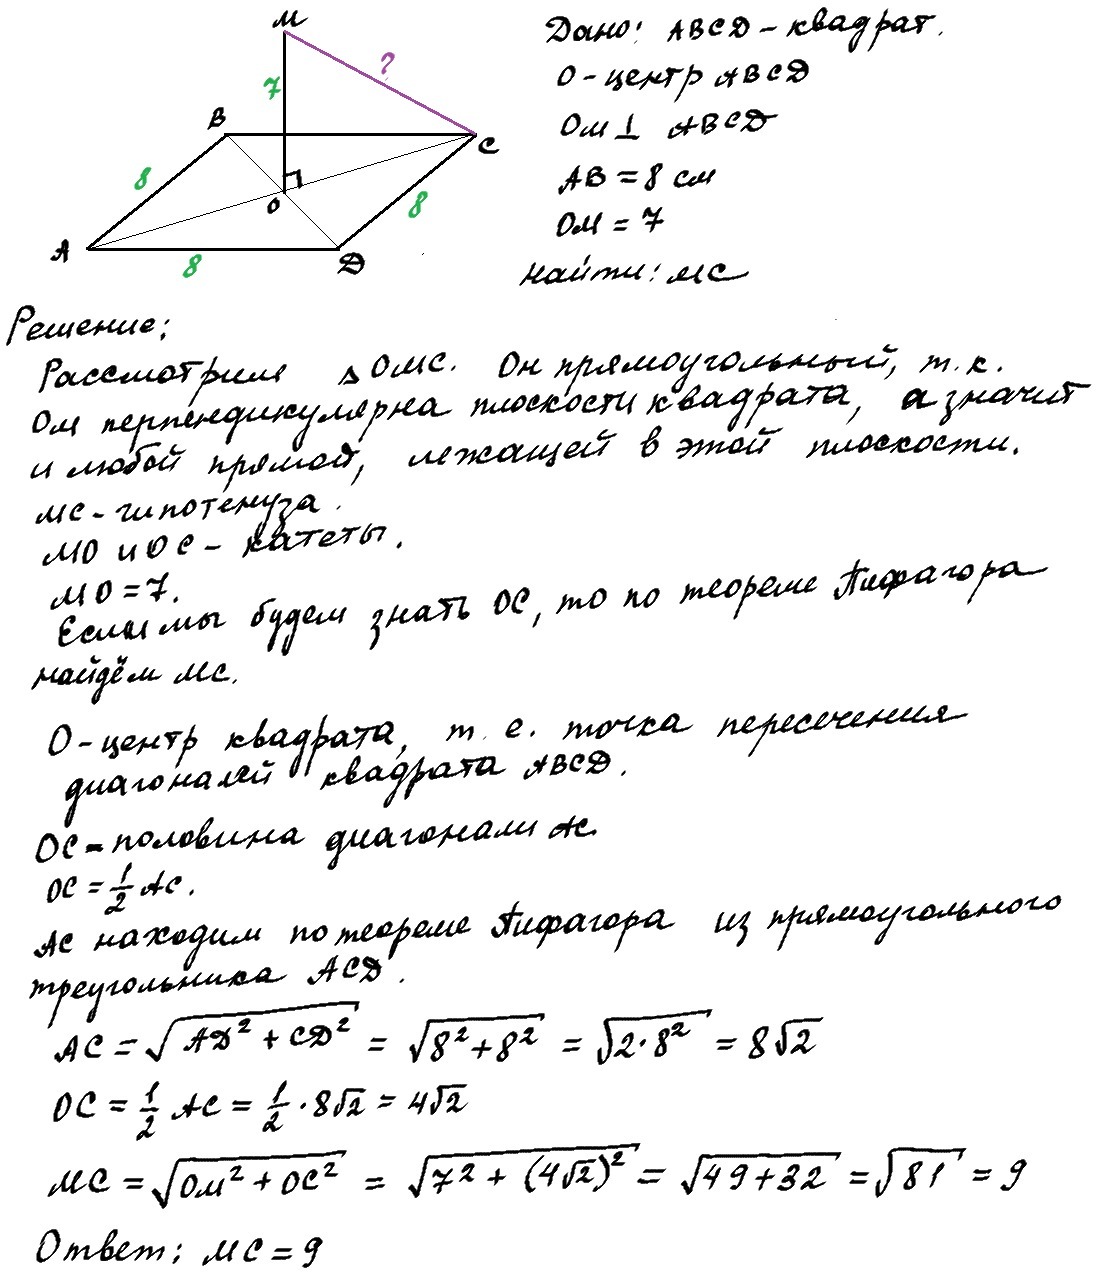 M
Дано: ABCD – квадрат.
?
7
O – центр ABCD
B
C
OM ⊥ ABCD
8
8
AB = 8 см
O
OM = 7
A
8
D
найти: MC
Решение:
Рассмотрим △OMC. Он прямоугольный, т.к.
OM перпендикулярна плоскости квадрата, а значит
и любой прямой, лежащей в этой плоскости.
MC – гипотенуза.
MO и OC – катеты.
MO = 7.
Если мы будем знать OC, то по теореме Пифагора
найдём MC.
O – центр квадрата, т.е. точка пересечения
диагоналей квадрата ABCD.
OC – половина диагонали AC.
OC = 1/2 AC.
AC находим по теореме Пифагора из прямоугольного
треугольника ACD.
AC = √(AD² + CD²) = √(8² + 8²) = √(2·8²) = 8√2
OC = 1/2 AC = 1/2 · 8√2 = 4√2
MC = √(OM² + OC²) = √(7² + (4√2)²) = √(49 + 32) = √81 = 9
Ответ: MC = 9